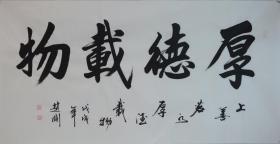 厚德載物
上善若水厚德載物
戊戌年